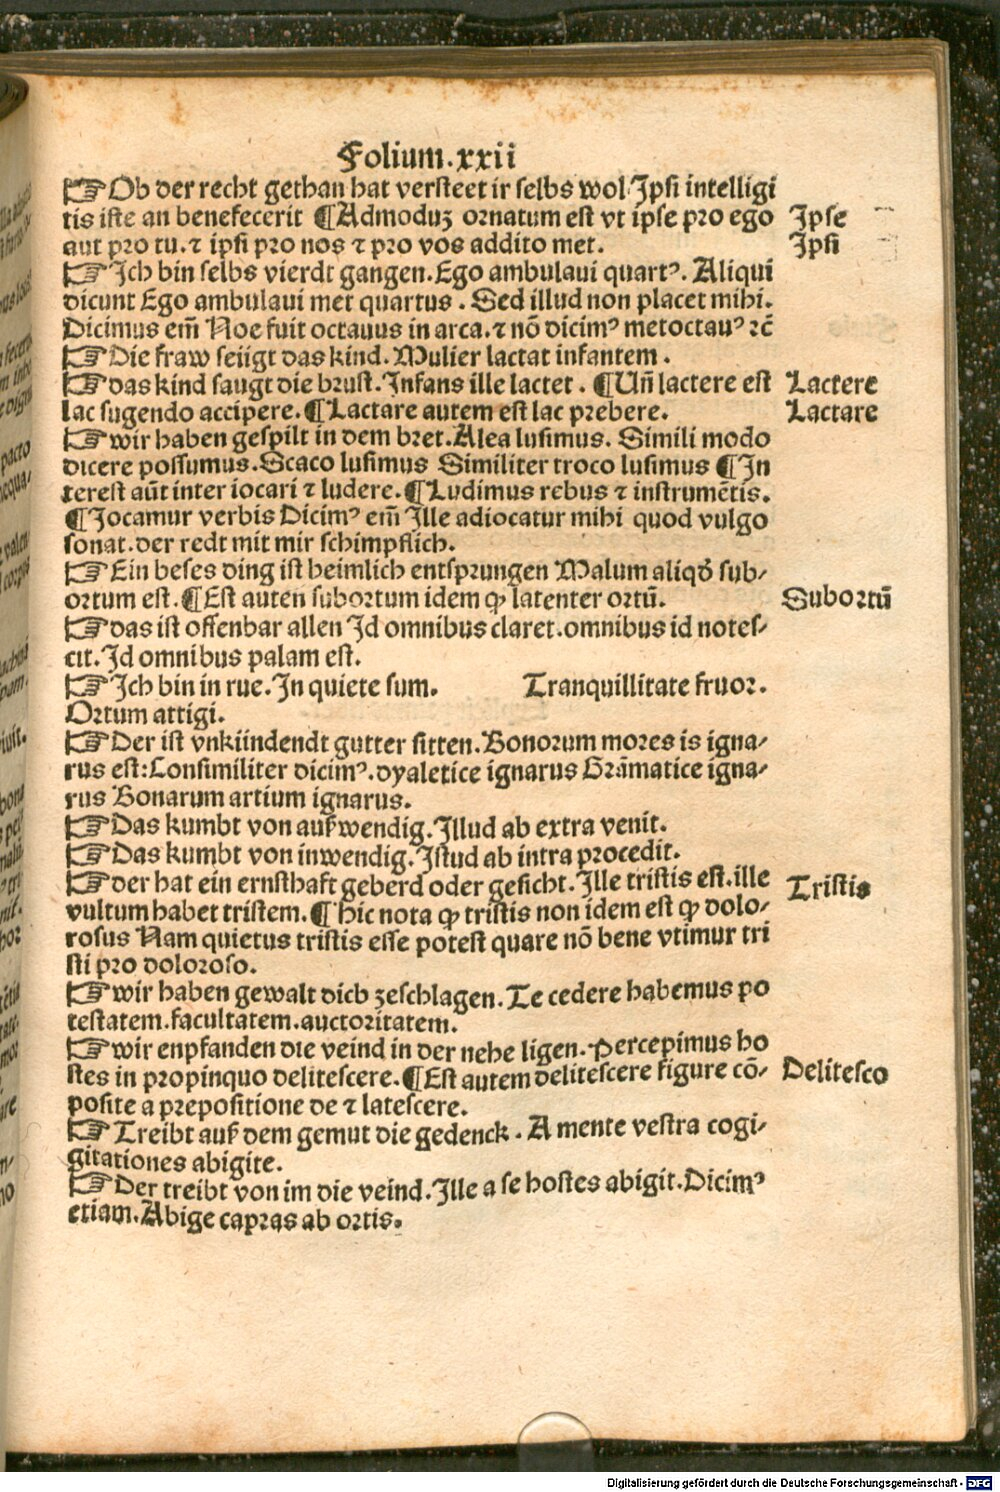 Folium.xxii
☞Ob der recht gethan hat versteet ir selbs wol Jpsi intelligi
tis iste an benefecerit ¶Admoduꝫ ornatum est vt ipse pro ego
Jpse
aut pro tu.⁊ ipsi pro nos ⁊ pro vos addito met.
Jpsi
☞Jch bin selbs vierdt gangen.Ego ambulaui quartꝰ. Aliqui
dicunt Ego ambulaui met quartus . Sed illud non placet mihi.
Dicimus em̄ Noe fuit octauus in arca.⁊ nō dicimꝰ metoctauꝰ ⁊c̄
☞Die fraw seiigt das kind. Mulier lactat infantem .
☞das kind saugt die brust. Jnfans ille lactet . ¶Un̄ lactere est
Lactere
lac sugendo accipere.¶Lactare autem est lac prebere.
Lactare
☞wir haben gespilt in dem bret.Alea lusimus. Simili modo
dicere possumus.Scaco lusimus Similiter troco lusimus ¶Jn
terest aūt inter iocari ⁊ ludere.¶Ludimus rebus ⁊ instrumētis.
¶Jocamur verbis Dicimꝰ em̄ Jlle adiocatur mihi quod vulgo
sonat.der redt mit mir schimpflich.
☞Ein beses ding ist heimlich entsprungen Malum aliqd̄ sub⸗
ortum est.¶Est auten subortum idem ꝙ latenter ortū.
Subortū
☞das ist offenbar allen Jd omnibus claret.omnibus id notes⸗
cit.Jd omnibus palam est.
☞Jch bin in rue.Jn quiete sum. Tranquillitate fruor.
Ortum attigi.
☞Der ist vnkiindendt gutter sitten.Bonorum mores is igna⸗
rus est:Consimiliter dicimꝰ.dyaletice ignarus Grāmatice igna⸗
rus Bonarum artium ignarus.
☞Das kumbt von außwendig.Jllud ab extra venit.
☞Das kumbt von inwendig.Jstud ab intra procedit.
☞der hat ein ernsthaft geberd oder gesicht.Jlle tristis est.ille
Tristis
vultum habet tristem.¶Hic nota ꝙ tristis non idem est ꝙ dolo⸗
rosus Nam quietus tristis esse potest quare nō bene vtimur tri
sti pro doloroso.
☞wir haben gewalt dich zeschlagen.Te cedere habemus po
testatem.facultatem.auctoritatem.
☞wir enpfanden die veind in der nehe ligen.Percepimus ho
stes in propinquo delitescere.¶Est autem delitescere figure cō⸗
Delitesco
posite a prepositione de ⁊ latescere.
☞Treibt auß dem gemut die gedenck . A mente vestra cogi⸗
gitationes abigite.
☞Der treibt von im die veind.Jlle a se hostes abigit.Dicimꝰ
etiam.Abige capras ab ortis.
Digitalisierung gefördert durch die Deutsche Forschungsgemeinschaft - DFG